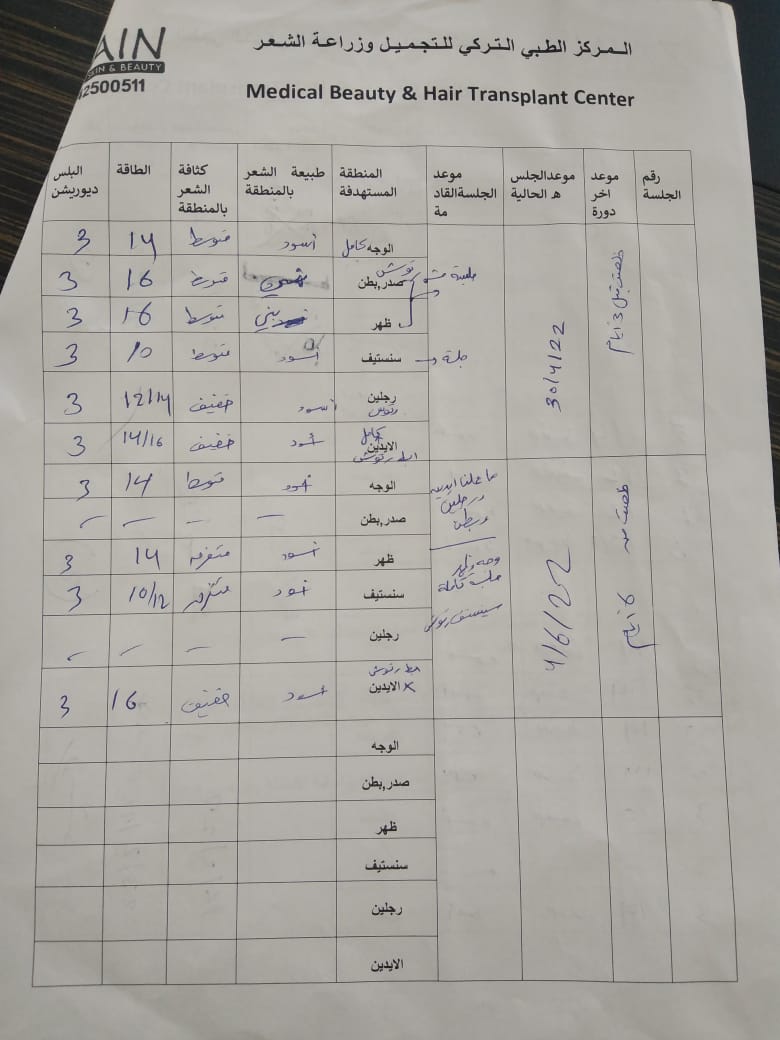 AIN
SKIN & BEAUTY
2500511
المركز الطبي التركي للتجميل وزراعة الشعر
Medical Beauty & Hair Transplant Center
رقم الجلسة
موعد اخر دورة
موعدالجلس ه الحالية
موعد الجلسةالقاد مة
المنطقة المستهدفة
طبيعة الشعر بالمنطقة
كثافة الشعر بالمنطقة
الطاقة
البلس ديوريشن
30/4/22
الوجه كامل أسود متوسط 14 3
صدر,بطن متوسط 16 3
ظهر بني متوسط 16 3
جلسة
سنستيف أسود متوسط 10 3
رجلين أسود خفيف 12/14 3
كامل
الايدين أسود خفيف 14/16 3
4/6/22
6 أيام
الوجه أسود متوسط 14 3
صدر,بطن – – – –
ظهر أسود متفرقه 14 3
سنستيف أسود متفرقه 10/12 3
جلسة كاملة
رجلين – – – –
x الايدين أسود خفيف 16 3
الوجه
صدر,بطن
ظهر
سنستيف
رجلين
الايدين